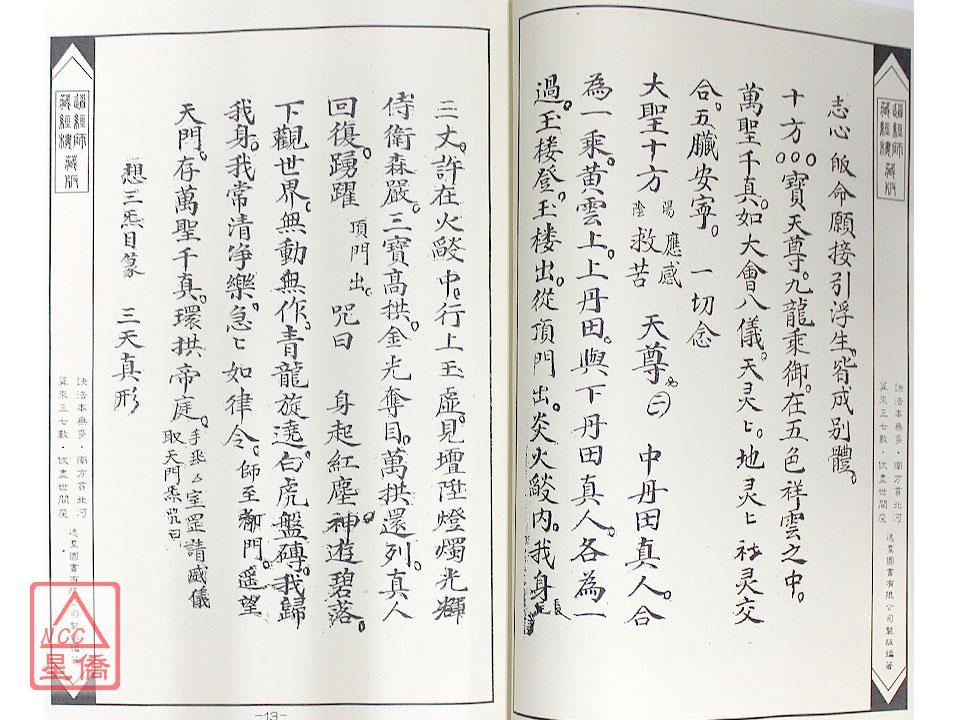 志心皈命願接引浮生。皆成別體。
十方○○○寶天尊。九龍乘御。在五色祥雲之中。
萬聖千真。如大會八儀。天灵匕。地灵匕 灵交
合。五臟安寧。 一切念
大聖十方 陰陽 救苦 應感 天尊 中丹田真人。合
為一乘。黃雲上。上丹田。與下丹田真人。各為一
過。玉楼登。玉楼出。從頂門出。炎火燄内。我身長
三丈。許在火燄中。行上玉虛。見壇陞燈燭光輝
侍衛森嚴。三寶高拱。金光奪目。萬拱還列。真人
回復。踴躍 頂門出。 咒曰 身起紅塵神。遊碧落。
下觀世界。無動無作。青龍旋遶。白虎盤磚。我歸
我身。我常清淨樂。急匕如律令。師至都門。遥望
天門。存萬聖千真。環拱帝庭。手 室罡請威儀
取天門炁咒曰
想三炁目篆 三天真形
趙經師
藏經樓 藏版
趙經師
藏經樓 藏版
訣法本無多．南方首北河
算來三七數．伏盡世間魔
逸羣圖書有限公司製版編著
訣法本無多．南方首北河
算來三七數．伏盡世間魔
逸羣圖書有限公司製版編著
-13-
NCC
星僑